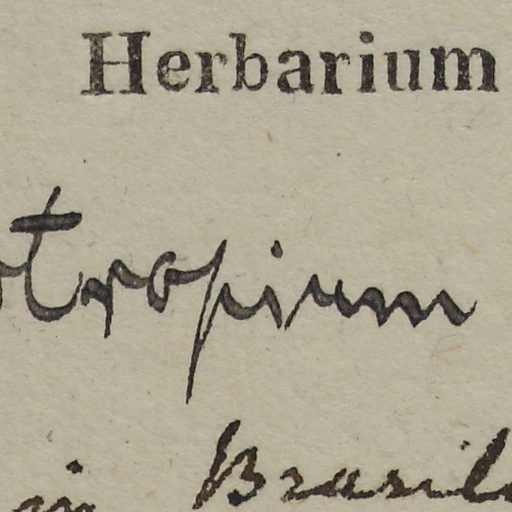 Herbarium
otropium
in Brasil